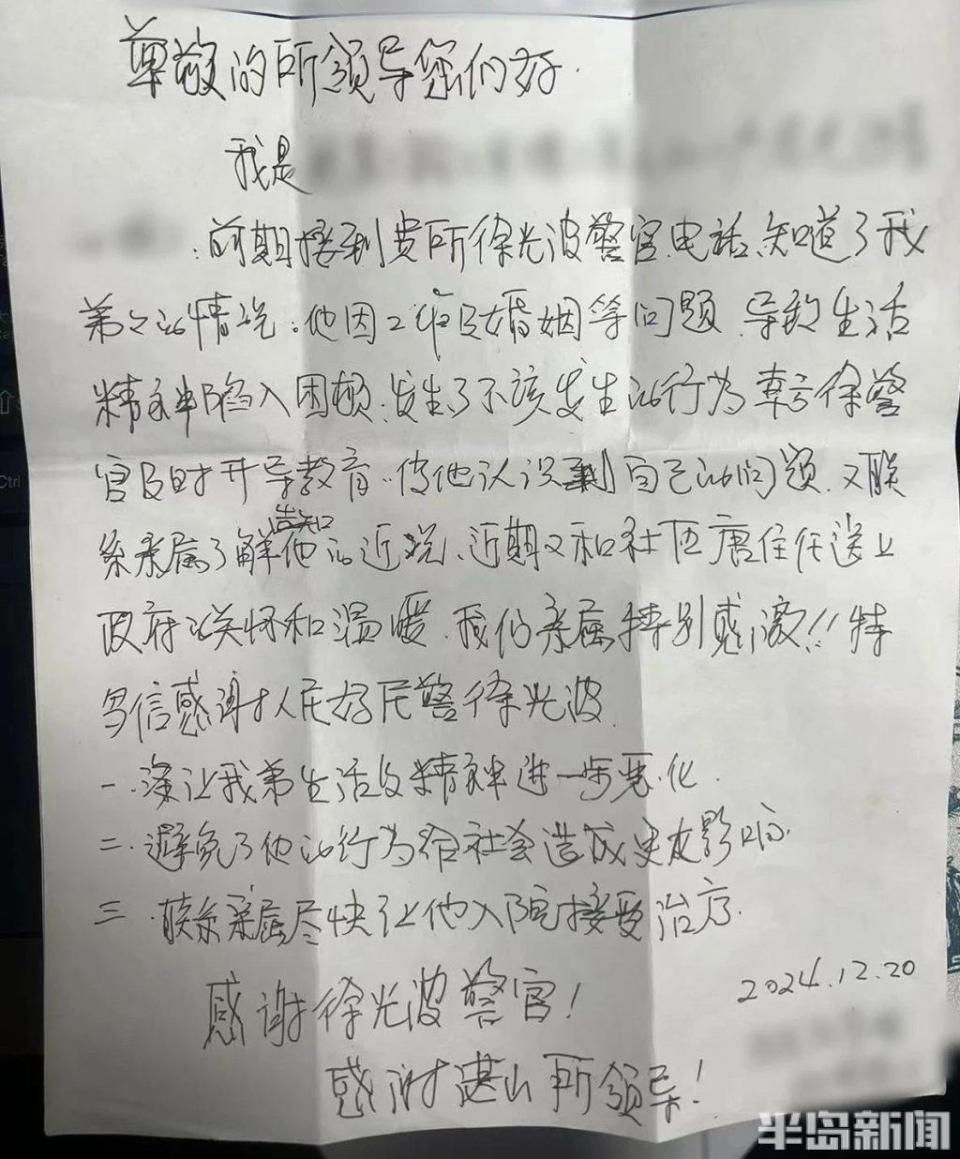 尊敬的所领导您们好.
我是
前期接到贵所徐光波警官电话,知道了我
弟々的情况。他因工作及婚姻等问题,导致生活
精神陷入困顿,发生了不该发生的行为幸亏徐警
官及时开导教育.使他认识到自己的问题.又联
告知
系亲属了解他的近况、近期又和社区唐住任送上
政府的关怀和温暖.我们亲属特别感激!!特
写信感谢人民好民警徐光波.
一.没让我弟生活及精神进一步恶化.
二.避免了他的行为给社会造成更大影响.
三.联系亲属尽快让他入院接受治疗.
2024.12.20
感谢徐光波警官!
感谢湛山所领导!
半岛新闻
Ctrl